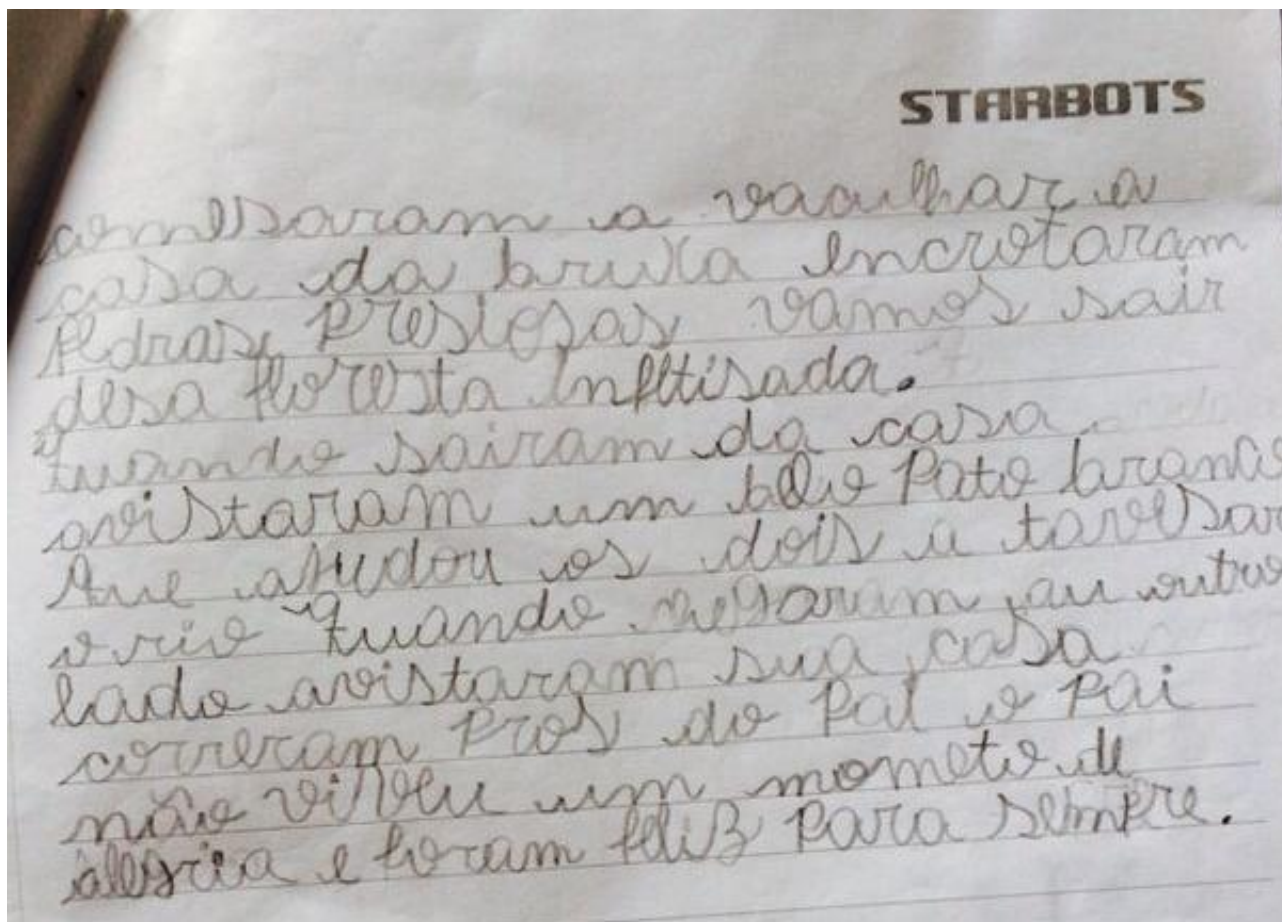 STARBOTS
comesaram a vaculhar a
casa da bruxa encrotaram
pedras presiosas vamos sair
desa floresta infitisada.
quando sairam da casa
avistaram um belo pato branco
que ajudou os dois a travesar
o rio quando chegaram au outro
lado avistaram sua casa
correram pros do pai o pai
não viveu um mometo de
alegria e foram feliz para sempre.